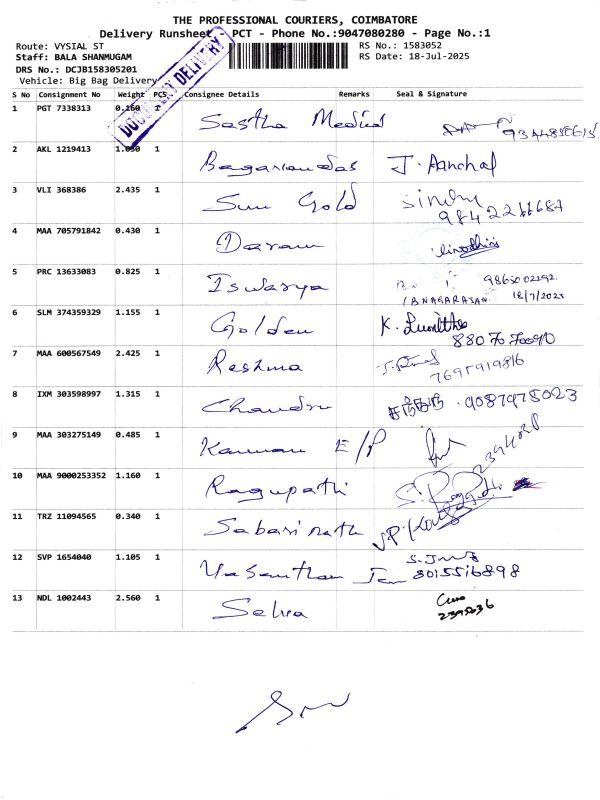 THE PROFESSIONAL COURIERS, COIMBATORE
Delivery Runsheet - PCT - Phone No.:9047080280 - Page No.:1
Route: VYSIAL ST
RS No.: 1583052
Staff: BALA SHANMUGAM
RS Date: 18-Jul-2025
DRS No.: DCJB158305201
Vehicle: Big Bag Delivery
DOCUMENT DELIVERY
S No Consignment No Weight PCS Consignee Details Remarks Seal & Signature
1 PGT 7338313 0.260 1 Sastha Medical
2 AKL 1219413 1.050 1 Bagariandas J. Aanchal
3 VLI 368386 2.435 1 Sun Gold Sindhu
9842266687
4 MAA 705791842 0.430 1 Daram Vinodhini
5 PRC 13633083 0.825 1 Iswarya
18/7/2025
6 SLM 374359329 1.155 1 Golden K.
88070 70090
7 MAA 600567549 2.425 1 Reshma
7695919816
8 IXM 303598997 1.315 1 Chandru 9087978023
9 MAA 303275149 0.485 1 Kannan E/P
10 MAA 9000253352 1.160 1 Ragupathi
2394028
11 TRZ 11094565 0.340 1 Sabarinath
12 SVP 1654040 1.105 1 Vasanthan
8015516898
13 NDL 1002443 2.560 1 Selva
2395636